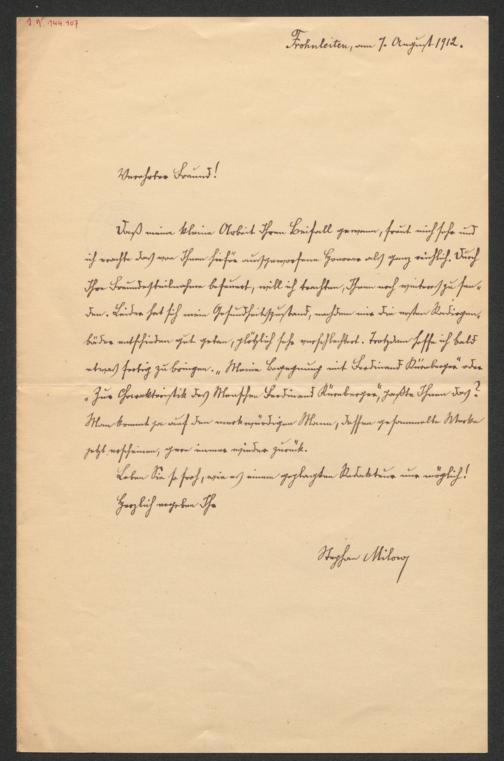 I. N. 144.107
Frohnleiten, am 7. August 1912.
Verehrter Freund!
Daß meine kleine Arbeit Ihren Beifall gewann, freut mich sehr und
ich erachte das von Ihnen hiefür ausgeworfene Honorar als ganz reichlich. Durch
Ihre Freundesteilnahme befeuert, will ich trachten, Ihnen noch weiteres zu sen-
den. Leider hat sich mein Gesundheitszustand, nachdem mir die ersten
bäder entschieden gut getan, plötzlich sehr verschlechtert. Trotzdem hoffe ich bald
etwas fertig zu bringen. „Meine Begegnung mit Ferdinand Kürnberger" oder
„Zur Charakteristik des Menschen Ferdinand Kürnberger", paßte Ihnen das?
Man kommt ja auf den merkwürdigen Mann, dessen gesammelte Werke
jetzt erscheinen, gern immer wieder zurück.
Leben Sie so froh, wie es einem geplagten Redakteur nur möglich!
Herzlich ergeben Ihr
Stephan Milow